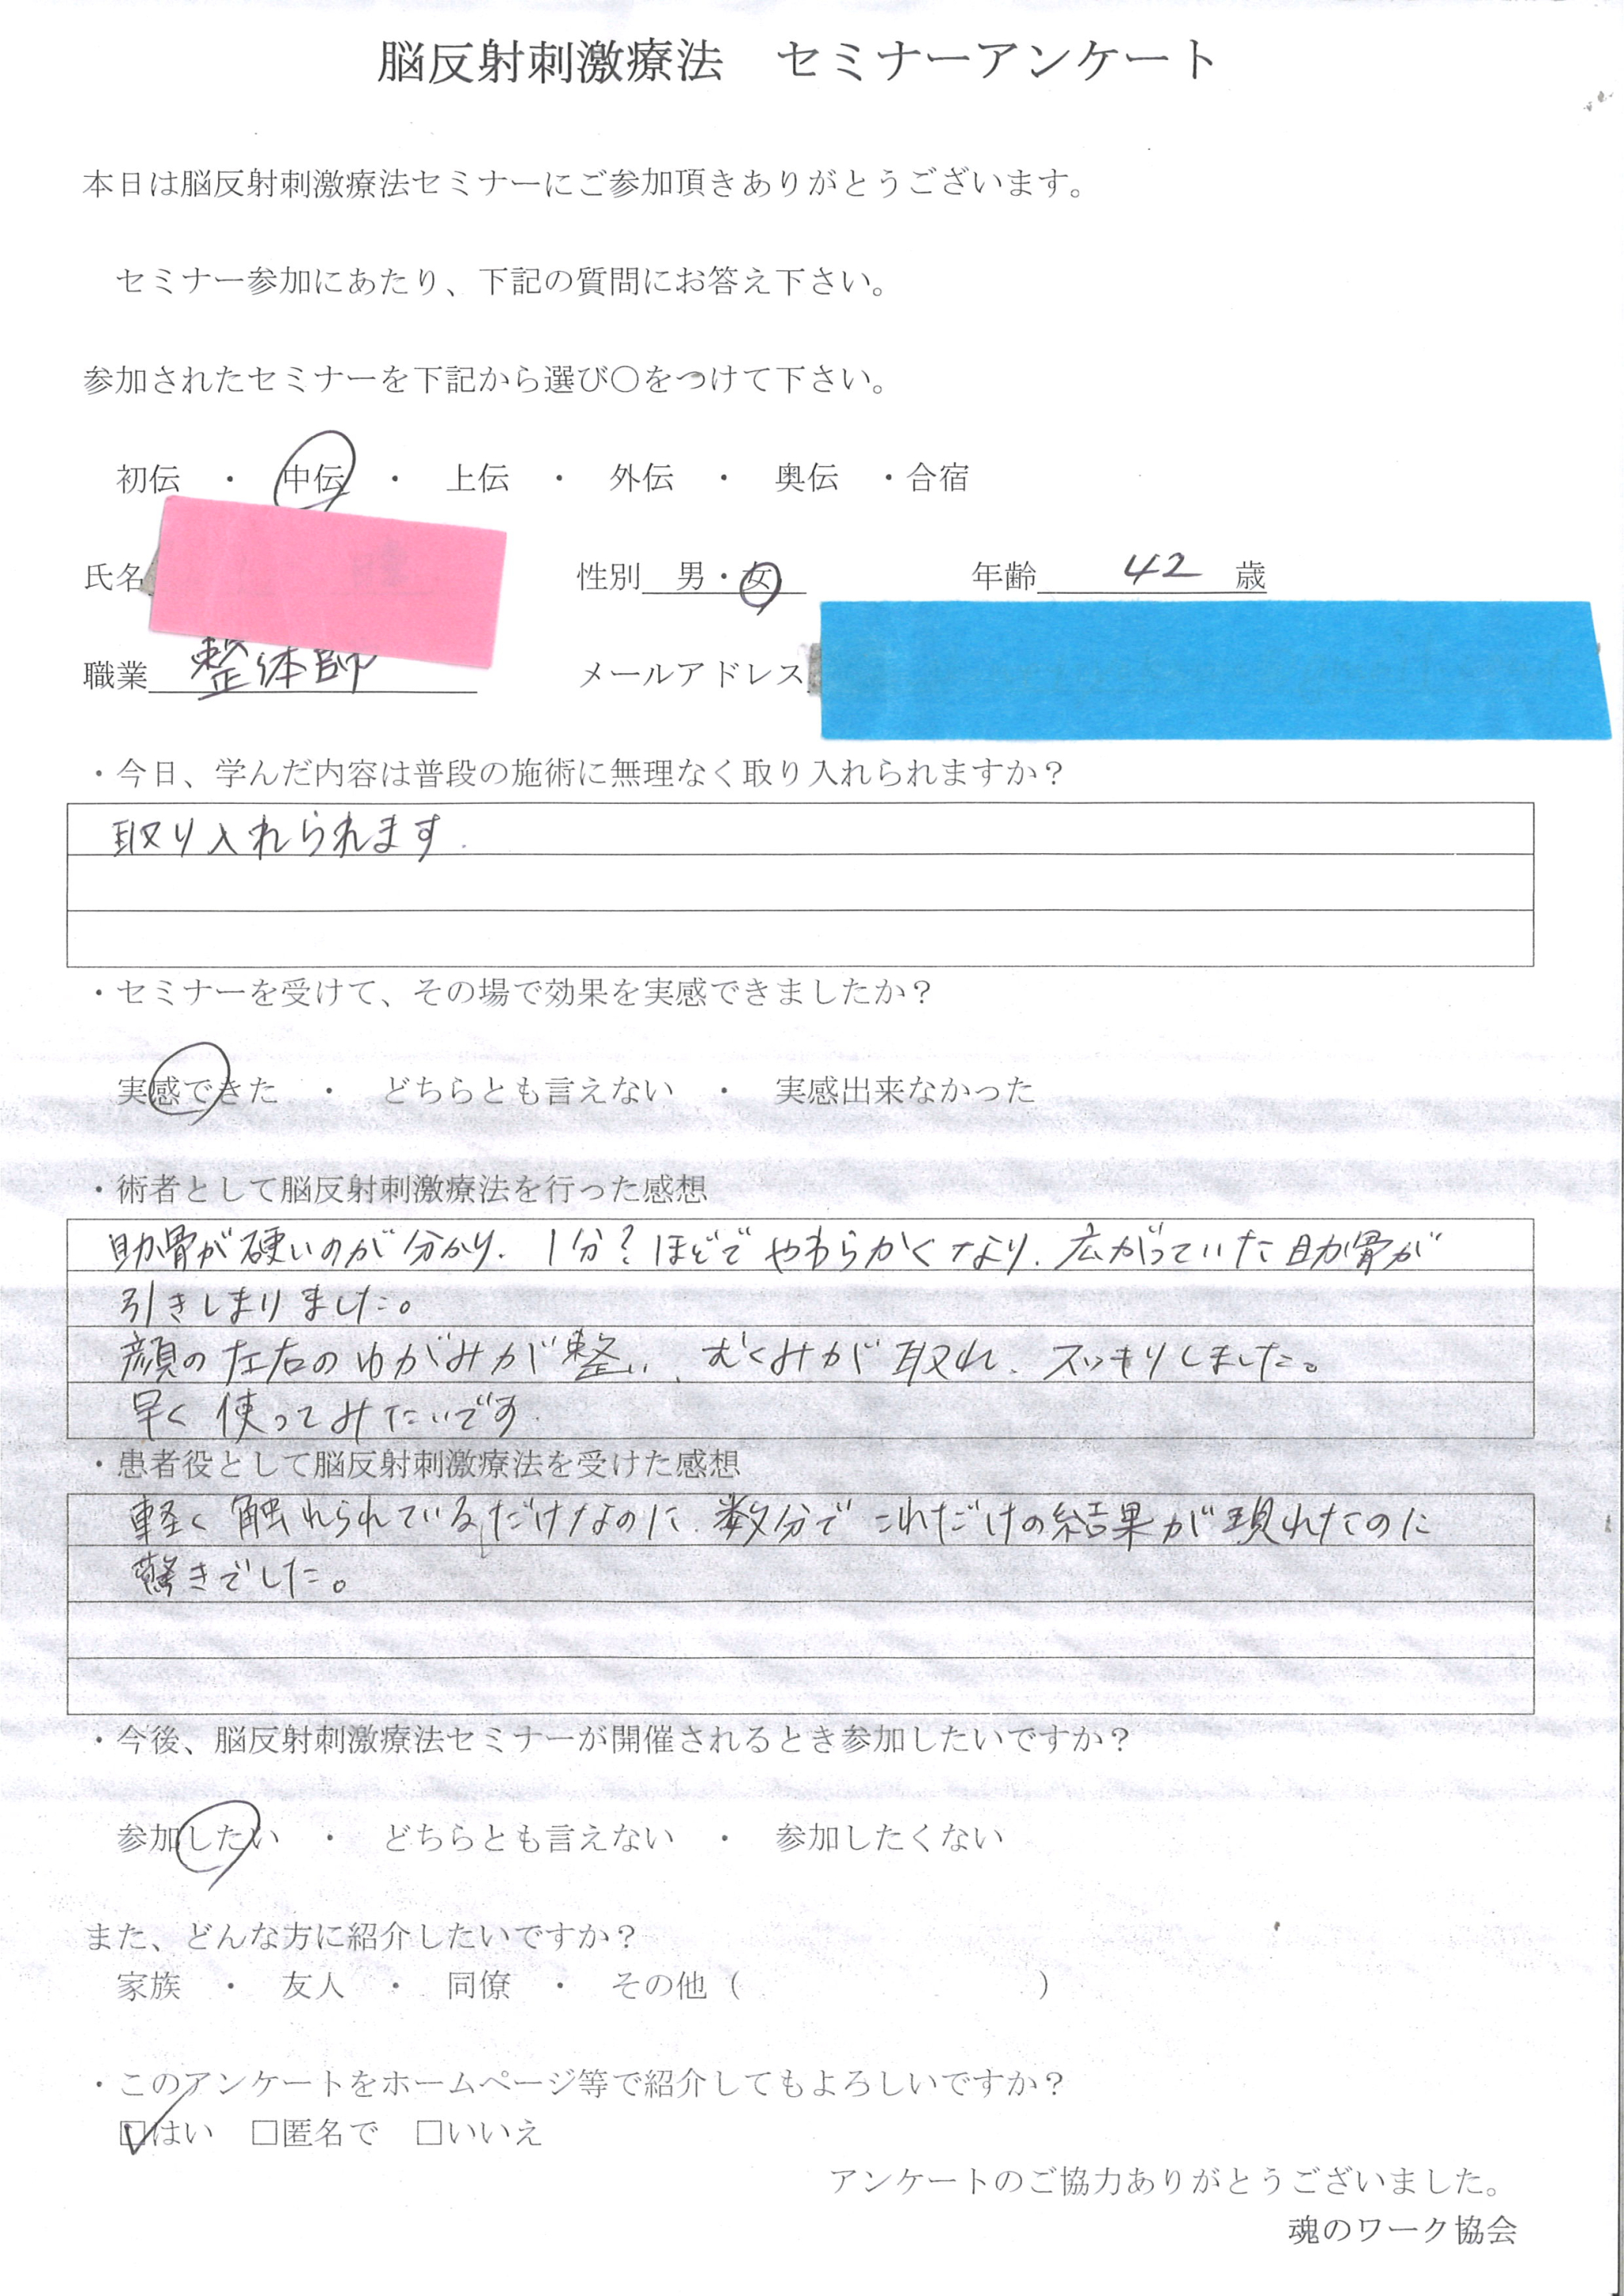 脳反射刺激療法　セミナーアンケート
本日は脳反射刺激療法セミナーにご参加頂きありがとうございます。
セミナー参加にあたり、下記の質問にお答え下さい。
参加されたセミナーを下記から選び〇をつけて下さい。
初伝　・　中伝　・　上伝　・　外伝　・　奥伝　・合宿
氏名　性別　男・女　年齢　42　歳
職業　整体師　メールアドレス
・今日、学んだ内容は普段の施術に無理なく取り入れられますか？
取り入れられます.
・セミナーを受けて、その場で効果を実感できましたか？
実感できた　・　どちらとも言えない　・　実感出来なかった
・術者として脳反射刺激療法を行った感想
肋骨が硬いのが分かり、1分？ほどでやわらかくなり、広がっていた肋骨が
引きしまりました。
顔の左右のゆがみが整い、むくみが取れ、スッキリしました。
早く使ってみたいです.
・患者役として脳反射刺激療法を受けた感想
軽く触れられているだけなのに、数分でこれだけの結果が現れたのに
驚きでした。
・今後、脳反射刺激療法セミナーが開催されるとき参加したいですか？
参加したい　・　どちらとも言えない　・　参加したくない
また、どんな方に紹介したいですか？
家族　・　友人　・　同僚　・　その他（　　　　　　　　　）
・このアンケートをホームページ等で紹介してもよろしいですか？
☑はい　□匿名で　□いいえ
アンケートのご協力ありがとうございました。
魂のワーク協会